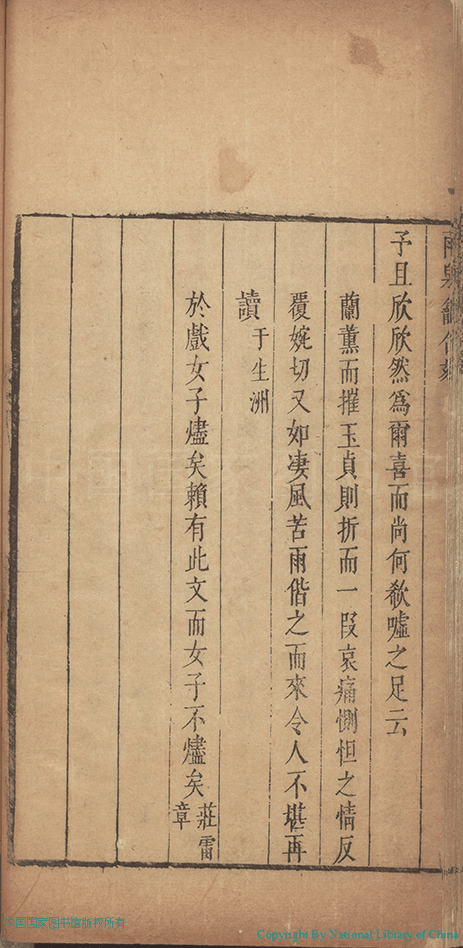 予且欣欣然爲爾喜而尚何欷噓之足云
蘭薰而摧玉貞則折而一段哀痛惻怛之情反
覆婉切又如凄風苦雨偕之而來令人不堪再
讀于生洲
於戲女子燼矣賴有此文而女子不燼矣莊雷章
中国国家图书馆版权所有
Copyright By National Library of China